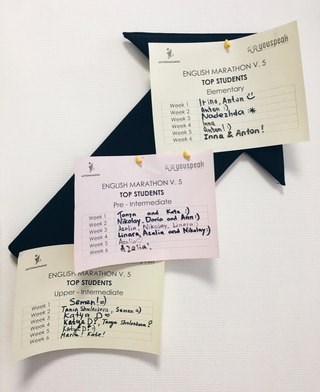 youspeak
ENGLISH MARATHON V. 5
TOP STUDENTS
Elementary
Week 1 Irina, Anton
Week 2 Anton :)
Week 3 Nadezhda
Week 4 Inna
Week 5 Anton! :)
Week 6 Inna & Anton!
youspeak
ENGLISH MARATHON V. 5
TOP STUDENTS
Pre - Intermediate
Week 1 Tonya and Kate :)
Week 2 Nikolay, Daria and Ann :)
Week 3 Azalia, Nikolay, Linara
Week 4 Linara, Azalia and Nikolay :)
Week 5 Azalia
Week 6 Azalia!
ENGLISH MARATHON V. 5
TOP STUDENTS
Upper - Intermediate
Week 1 Semen! =)
Week 2 Tanya Semen =)
Week 3 Katya D.
Week 4 Katya D?, Tanya
Week 5 Katya D :)
Week 6 Maria! Kate!